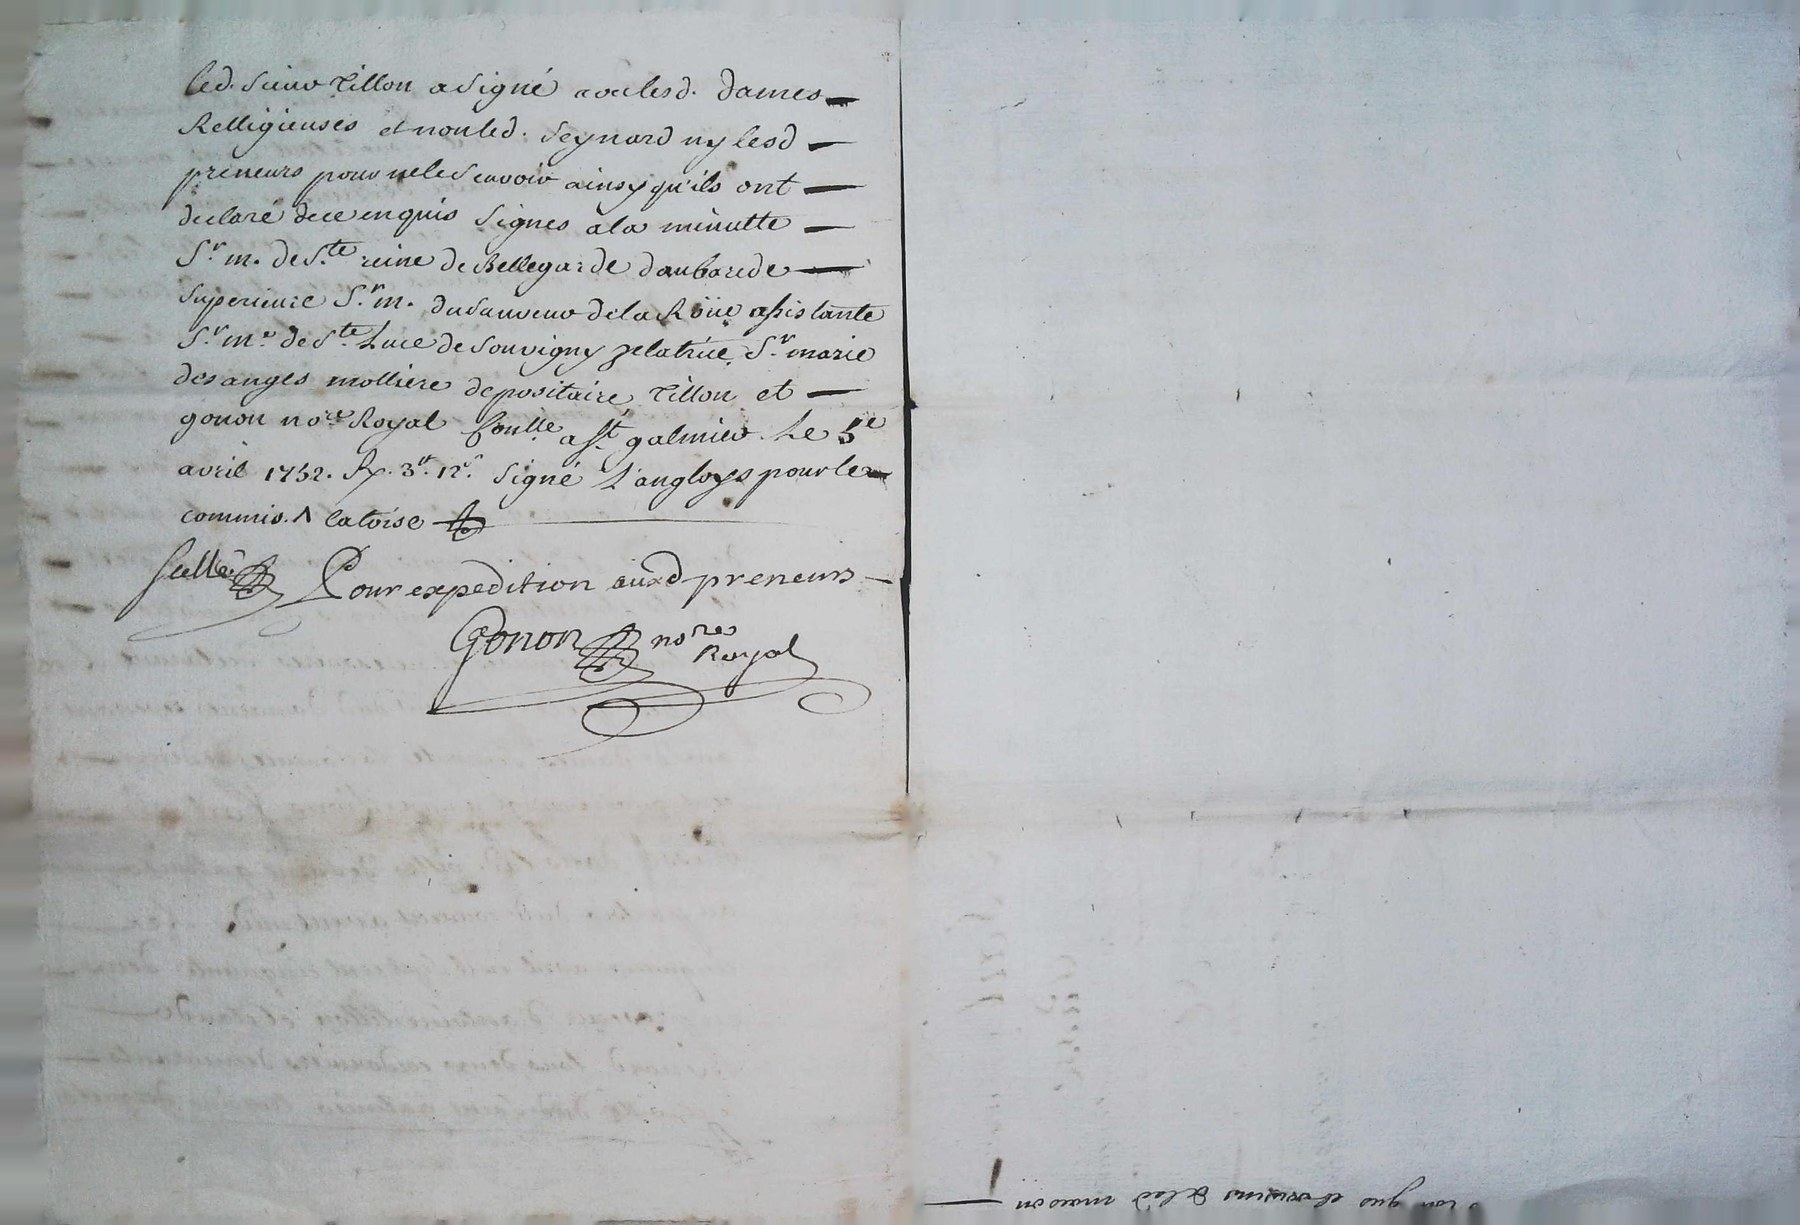 led. Sieur Tillon a signé avec lesd. dames
Relligieuses et non led. Seynard ny lesd
preneurs pour ne le scavoir ainsy qu'ils ont
declaré de ce enquis signés a la minutte
Sr. m. de Ste reine de Bellegarde daubarede
superieure Sr. m. du sauveur de la Roüe assistante
Sr. me. de Ste Luce de Souvigny zelatrice Sr. marie
des anges molliere depositaire Tillon et
gonon nore Royal Conlle a St galmier Le 5e
avril 1752. R. 3lt. 12s. signé Langloys pour le
commis. ^ la toise
scellé Pour expedition auxd preneurs
Gonon nore
Royal